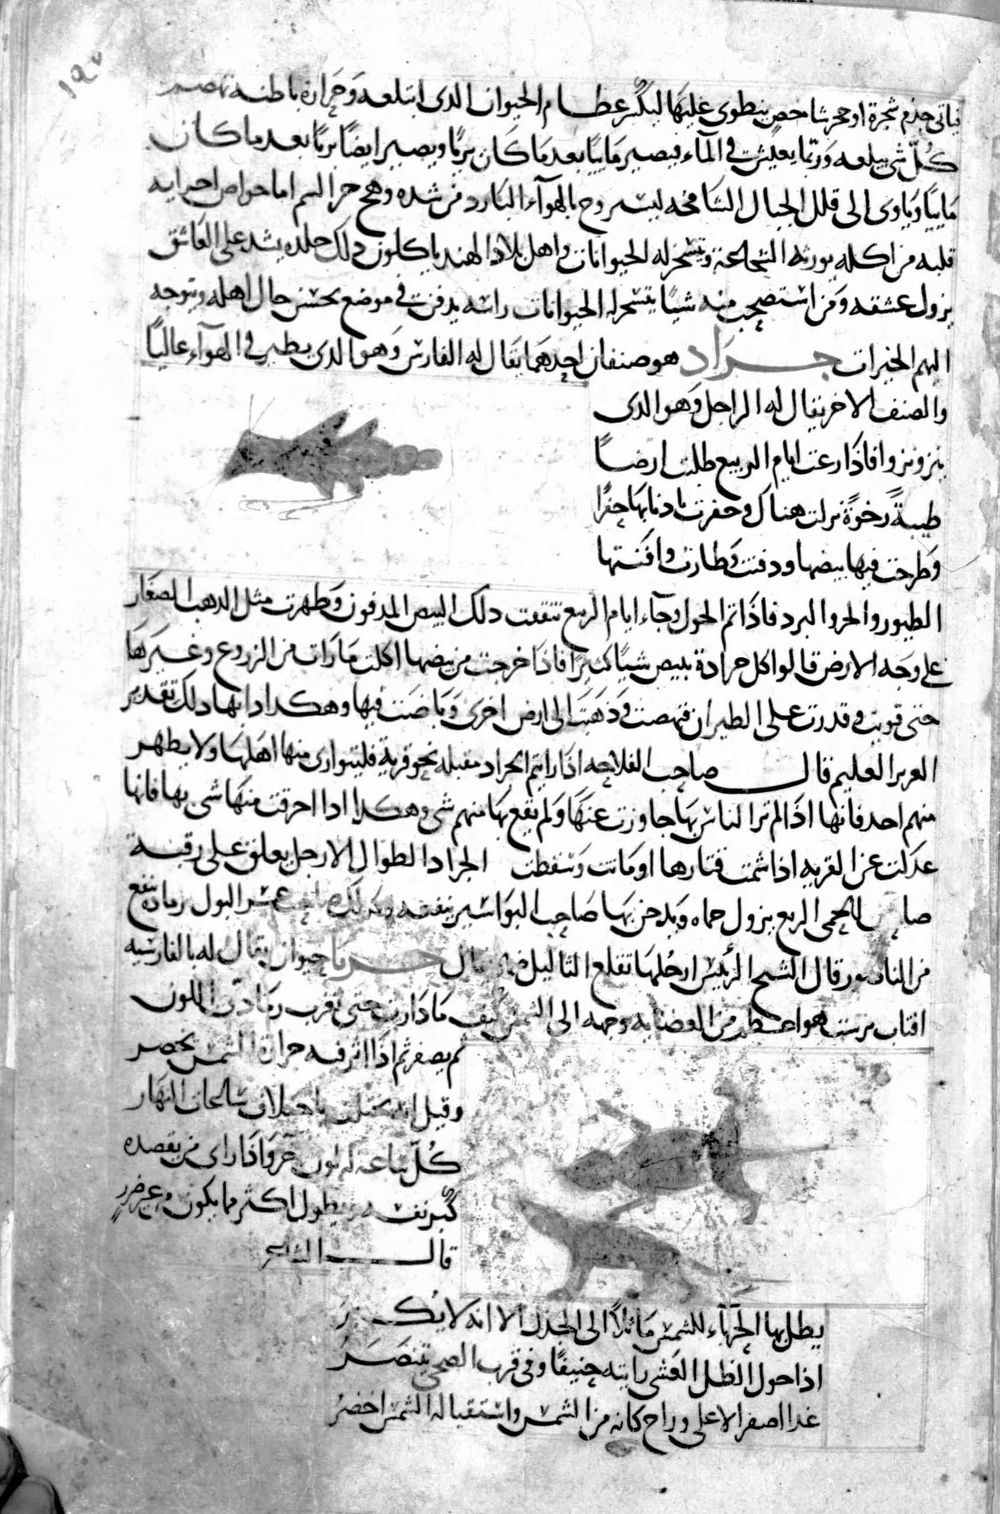 ١٩٧
فياتي جذم شجرة او حجر شاخص ينطوي عليها ليكسر عظام الحيوان الذي ابتلعه وحرارة باطنه تهضم
كل شي يبلعه وربما يعيش في الماء فيصير مائيا بعد ما كان بريا ويصير ايضا بريا بعد ما كان
مائيا وياوى الى قلل الجبال الشامخه ليستروح بالهواء البارد من شده وهج حر السم اما خواص اجزايه
قلبه من اكله يورثه الشجاعة وتسخر له الحيوانات واهل بلاد الهند ياكلون ذلك جلده يشد على العاشق
يزول عشقه ومن استصحب منه شيا يتسخر له الحيوانات راسه يدفن في موضع يحسن حال اهله ويتوجه
اليهم الخيرات جراد هو صنفان احدهما يقال له الفارس وهو الذي يطير في الهواء عاليا
والصنف الاخر يقال له الراجل وهو الذي
ينزو نزوا فاذا رعت ايام الربيع طلبت ارضا
طيبة رخوة نزلت هناك وحفرت باذنابها حفرا
وطرحت فيها بيضها ودفنت وطارت وافنتها
الطيور والحر والبرد فاذا تم الحول وجاء ايام الربيع تنفقت ذلك البيض المدفون وظهرت مثل الدبب الصغار
على وجه الارض قالوا كل جرادة تبيض شيا كثيرا فاذا خرجت من بيضها اكلت ما رات من الزروع وغيرها
حتى قويت وقدرت على الطيران فنهضت وذهبت الى ارض اخرى وباضت فيها وهكذا دابها ذلك تقدير
العزيز العليم قال صاحب الفلاحه اذا رايتم الجراد مقبله نحو قرية فليتوارى منها اهلها ولا يظهر
منهم احد فانها اذا لم تر الناس بها جاوزت عنها ولم يقع بها منهم شي وهكذا اذا احرقت منها شي بها فانها
عدلت عن القرية اذا شمت قتارها او ماتت وسقطت الجراد الطوال الارجل يعلق على رقبة
صاحب الحمى الربع يزول حماه ويدخن بها صاحب البواسير ينفعه وكذلك عسر البول رماده ينفع
من الناسور قال الشيخ الرئيس ارجلها تقلع الثاليل حربا حيوان يقال له بالفارسيه
افتاب پرست هو اعظم من العضايه وجهه الى الشمس كيف ما دارت حتى تغرب رمادي اللون
ثم يصفر ثم اذا اثر فيه حرارة الشمس يخضر
وقيل انه يختلف باختلاف ساعات النهار
كل ساعة له لون اخر واذا راى من يقصده
كبر نفسه ويطول اكثر مما يكون من غير ضرر
قال الشاعر
يظل بها الحرباء للشمس ماثلا الى الجذل الا انه لا يكبر
اذا حول الظل العشي رايته حنيفا وفي قرب الضحى يتنصر
غدا اصفر الاعلى وراح كانه من الشمس واستقباله الشمس اخضر